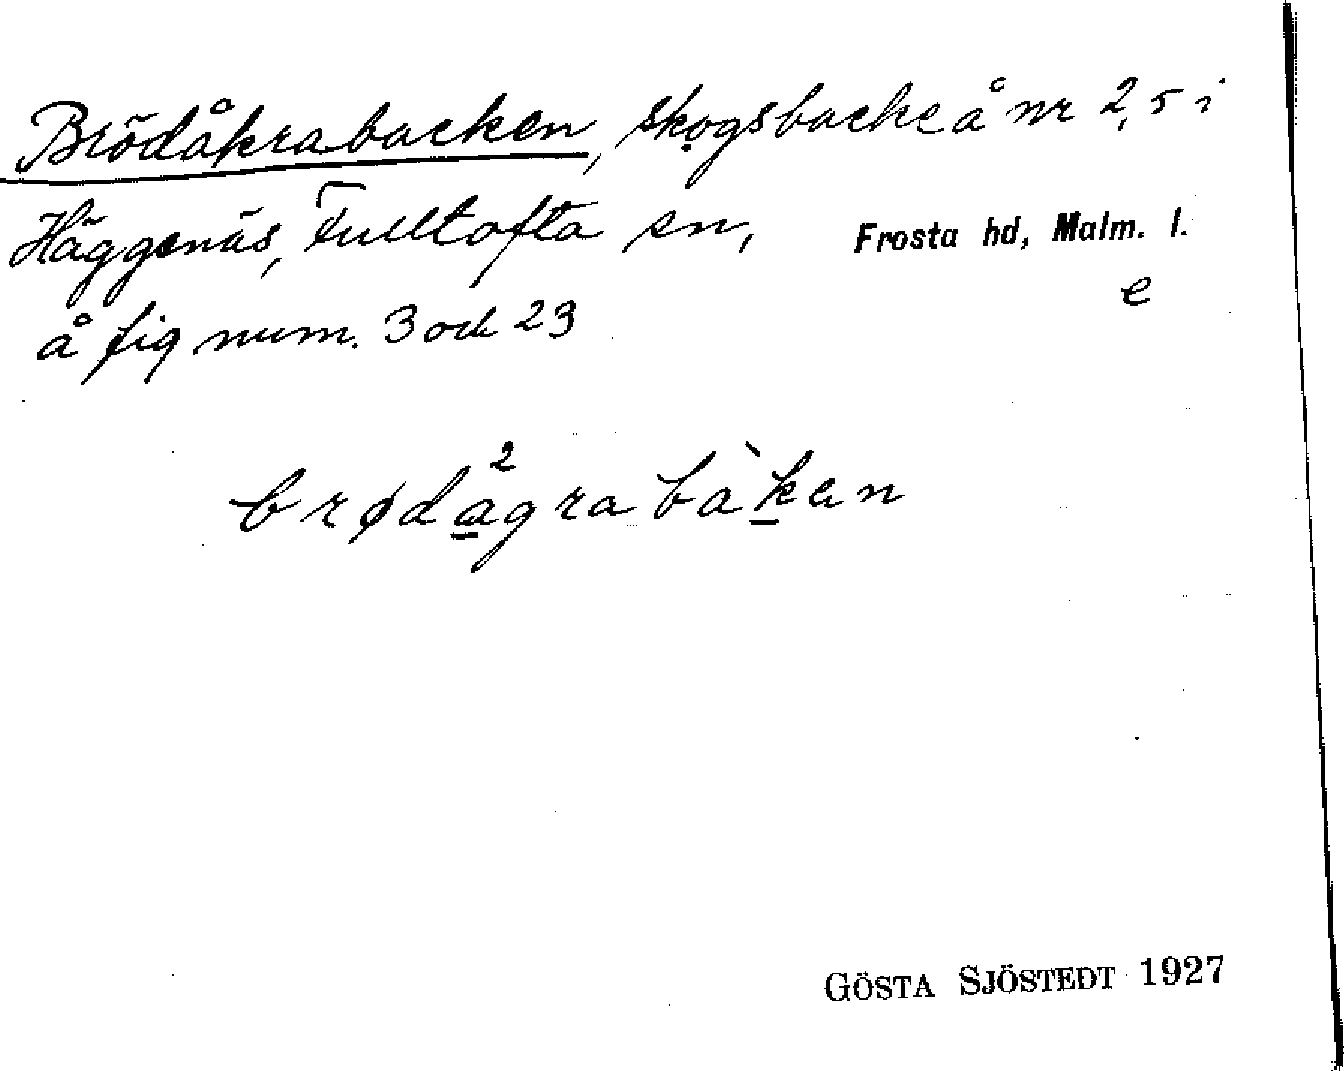 Brödåkrabacken, skogsbacke å nr 2, 5 i
Häggenäs, Fulltofta sn, Frosta hd, Malm. l.
e
å fig num. 3 och 23
brøda²grabàkan
GÖSTA SJÖSTEDT 1927